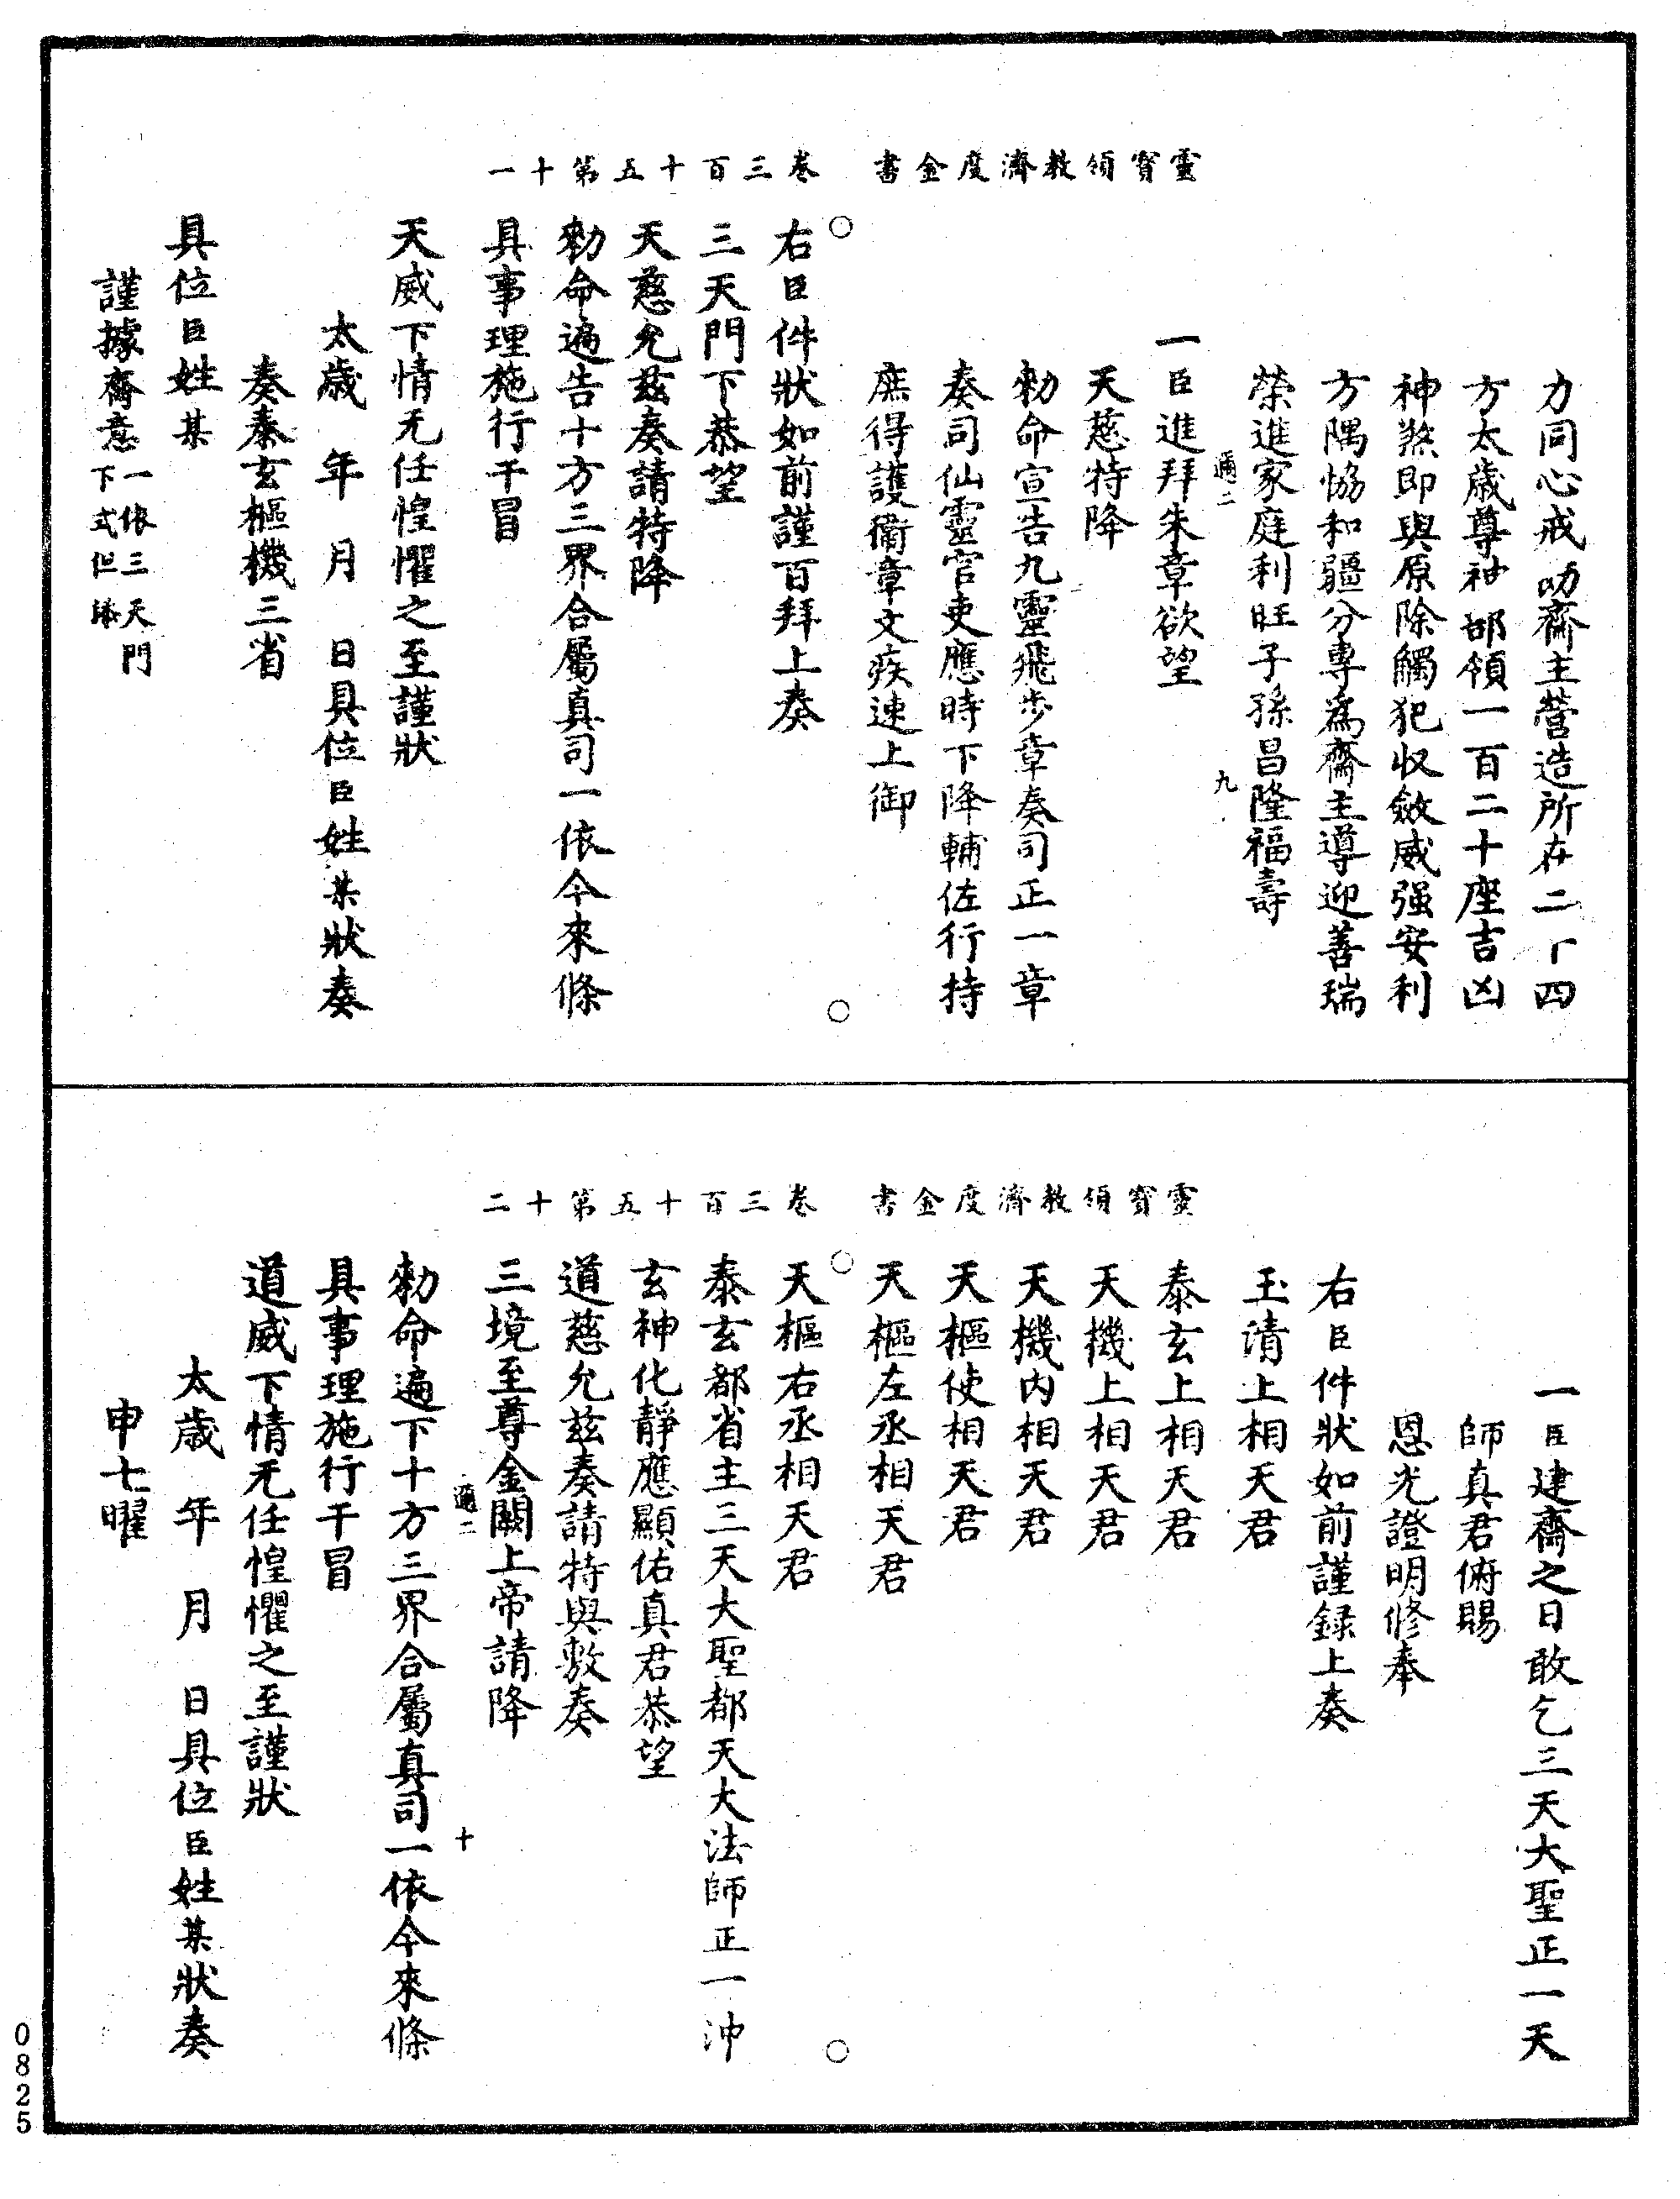 靈寶領教濟度金書　卷三百十五第十一
力同心戒叻齋主營造所在二十四
方太歲尊神部領一百二十座吉凶
神煞即與原除觸犯收斂威强安利
方隅恊和疆分専爲齋主導迎善瑞
榮進家庭利旺子孫昌隆福壽
遍二　九
一臣進拜朱章欲望
天慈特降
勑命宣告九靈飛步章奏司正一章
奏司仙靈官吏應時下降輔佐行持
庶得護衛章文疾速上御
右臣件狀如前謹百拜上奏
三天門下恭望
天慈允兹奏請特降
勑命遍告十方三界合屬真司一依今來條
具事理施行干冒
天威下情无任惶懼之至謹狀
太歲　年　月　日具位臣姓某狀奏
奏泰玄樞機三省
具位臣姓某
謹據齋意一依三天門
下式但

靈寶領教濟度金書　卷三百十五第十二
一臣建齋之日敢乞三天大聖正一天
師真君俯賜
恩光證明修奉
右臣件狀如前謹録上奏
玉清上相天君
泰玄上相天君
天機上相天君
天機内相天君
天樞使相天君
天樞左丞相天君
天樞右丞相天君
泰玄都省主三天大聖都天大法師正一沖
玄神化靜應顯佑真君恭望
道慈允兹奏請特與敷奏
三境至尊金闕上帝請降
遍二　十
勑命遍下十方三界合屬真司一依今來條
具事理施行干冒
道威下情无任惶懼之至謹狀
太歲　年　月　日具位臣姓某狀奏
申七曜
0825